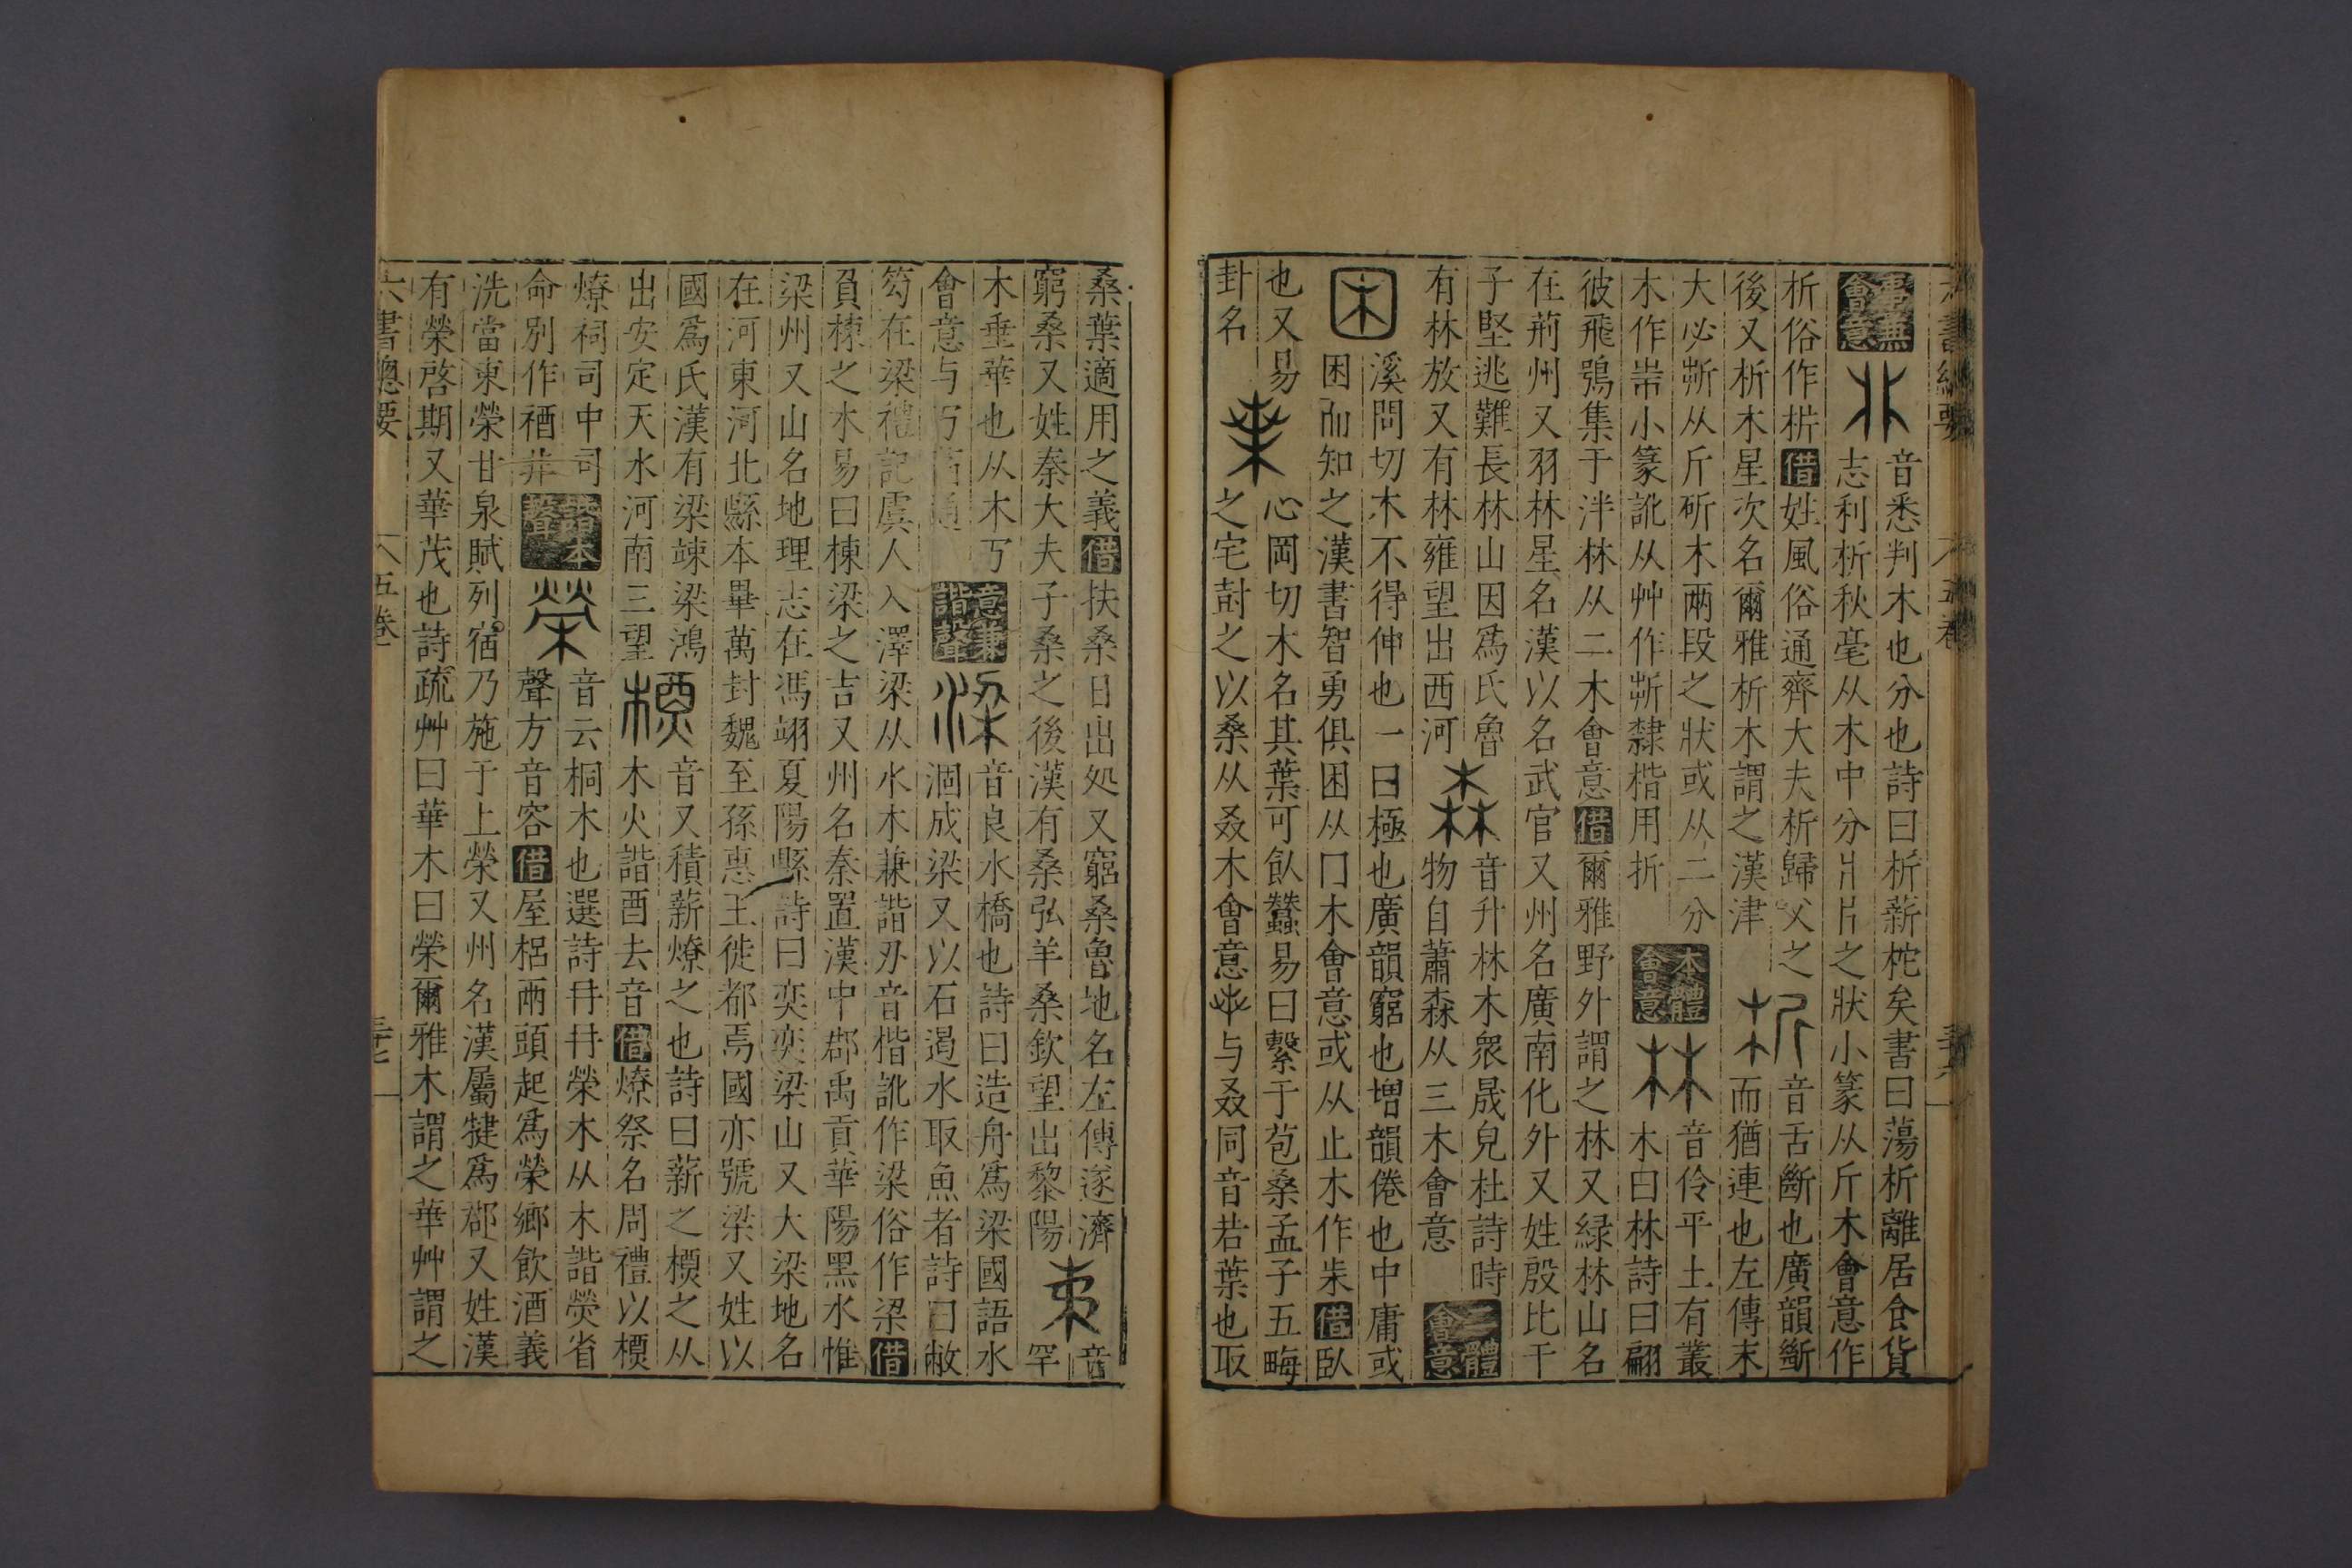 六書總要 五卷 三十六
虛無會意
音悉判木也分也詩曰析薪杝矣書曰蕩析離居食貨
志利析秋毫从木中分爿片之狀小篆从斤木會意作
析俗作枿借姓風俗通齊大夫析歸父之
音舌斷也廣韻斷
後又析木星次名爾雅析木謂之漢津
而猶連也左傳末
大必斨从斤斫木兩段之狀或从二分
本體會意
音伶平土有叢
木作𣂚小篆訛从艸作斨隸楷用折
木曰林詩曰翩
彼飛鴞集于泮林从二木會意借爾雅野外謂之林又緑林山名
在荊州又羽林星名漢以名武官又州名廣南化外又姓殷比干
子堅逃難長林山因爲氏魯
音升林木衆晟皃杜詩時
有林放又有林雍望出西河
物自蕭森从三木會意
三體會意
溪問切木不得伸也一曰極也廣韻窮也增韻倦也中庸或
困而知之漢書智勇俱困从口木會意或从止木作朱借臥
也又易
心岡切木名其葉可飤蠶易曰繫于苞桑孟子五畮
卦名
之宅封之以桑从叒木會意与叒同音若葉也取
桑葉適用之義借扶桑日出処又窮桑魯地名左傳遂濟
窮桑又姓秦大夫子桑之後漢有桑弘羊桑欽望出黎陽
音
罕
木垂華也从木丂
會意与丂
意兼諧聲
音良水橋也詩曰造舟爲梁國語水
涸成梁又以石遏水取魚者詩曰敝
笱在梁禮記虞人入澤梁从水木兼諧刅音楷訛作梁俗作梁借
負棟之木易曰棟梁之吉又州名秦置漢中郡禹貢華陽黑水惟
梁州又山名地理志在馮翊夏陽縣詩曰奕奕梁山又大梁地名
在河東河北縣本畢萬封魏至孫惠王徙都焉國亦號梁又姓以
國爲氏漢有梁竦梁鴻
音又積薪燎之也詩曰薪之槱之从
出安定天水河南三望
木火諧酉去音借燎祭名周禮以槱
燎祠司中司
命別作禉非
諧本聲
音云桐木也選詩冄冄榮木从木諧熒省
聲方音容借屋梠兩頭起爲榮鄉飲酒義
洗當東榮甘泉賦列宿乃施于上榮又州名漢屬犍爲郡又姓漢
有榮啓期又華茂也詩疏艸曰華木曰榮爾雅木謂之華艸謂之
六書總要 五卷 三十七